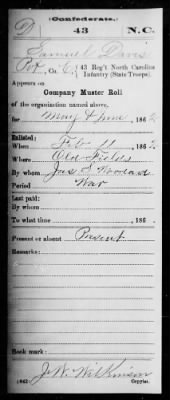 (Confederate.)
D 43 N.C.
Samuel Davis
Pvt, Co. C, 43 Reg't North Carolina
Infantry (State Troops).
Appears on
Company Muster Roll
of the organization named above,
for May & June, 186
Enlisted:
When Feb 11, 186
Where Old Fields
By whom Jas S. Woodard
Period War
Last paid:
By whom
To what time , 186 .
Present or absent Present
Remarks:
Book mark:
J. W. Wilkinson
(642) Copyist.